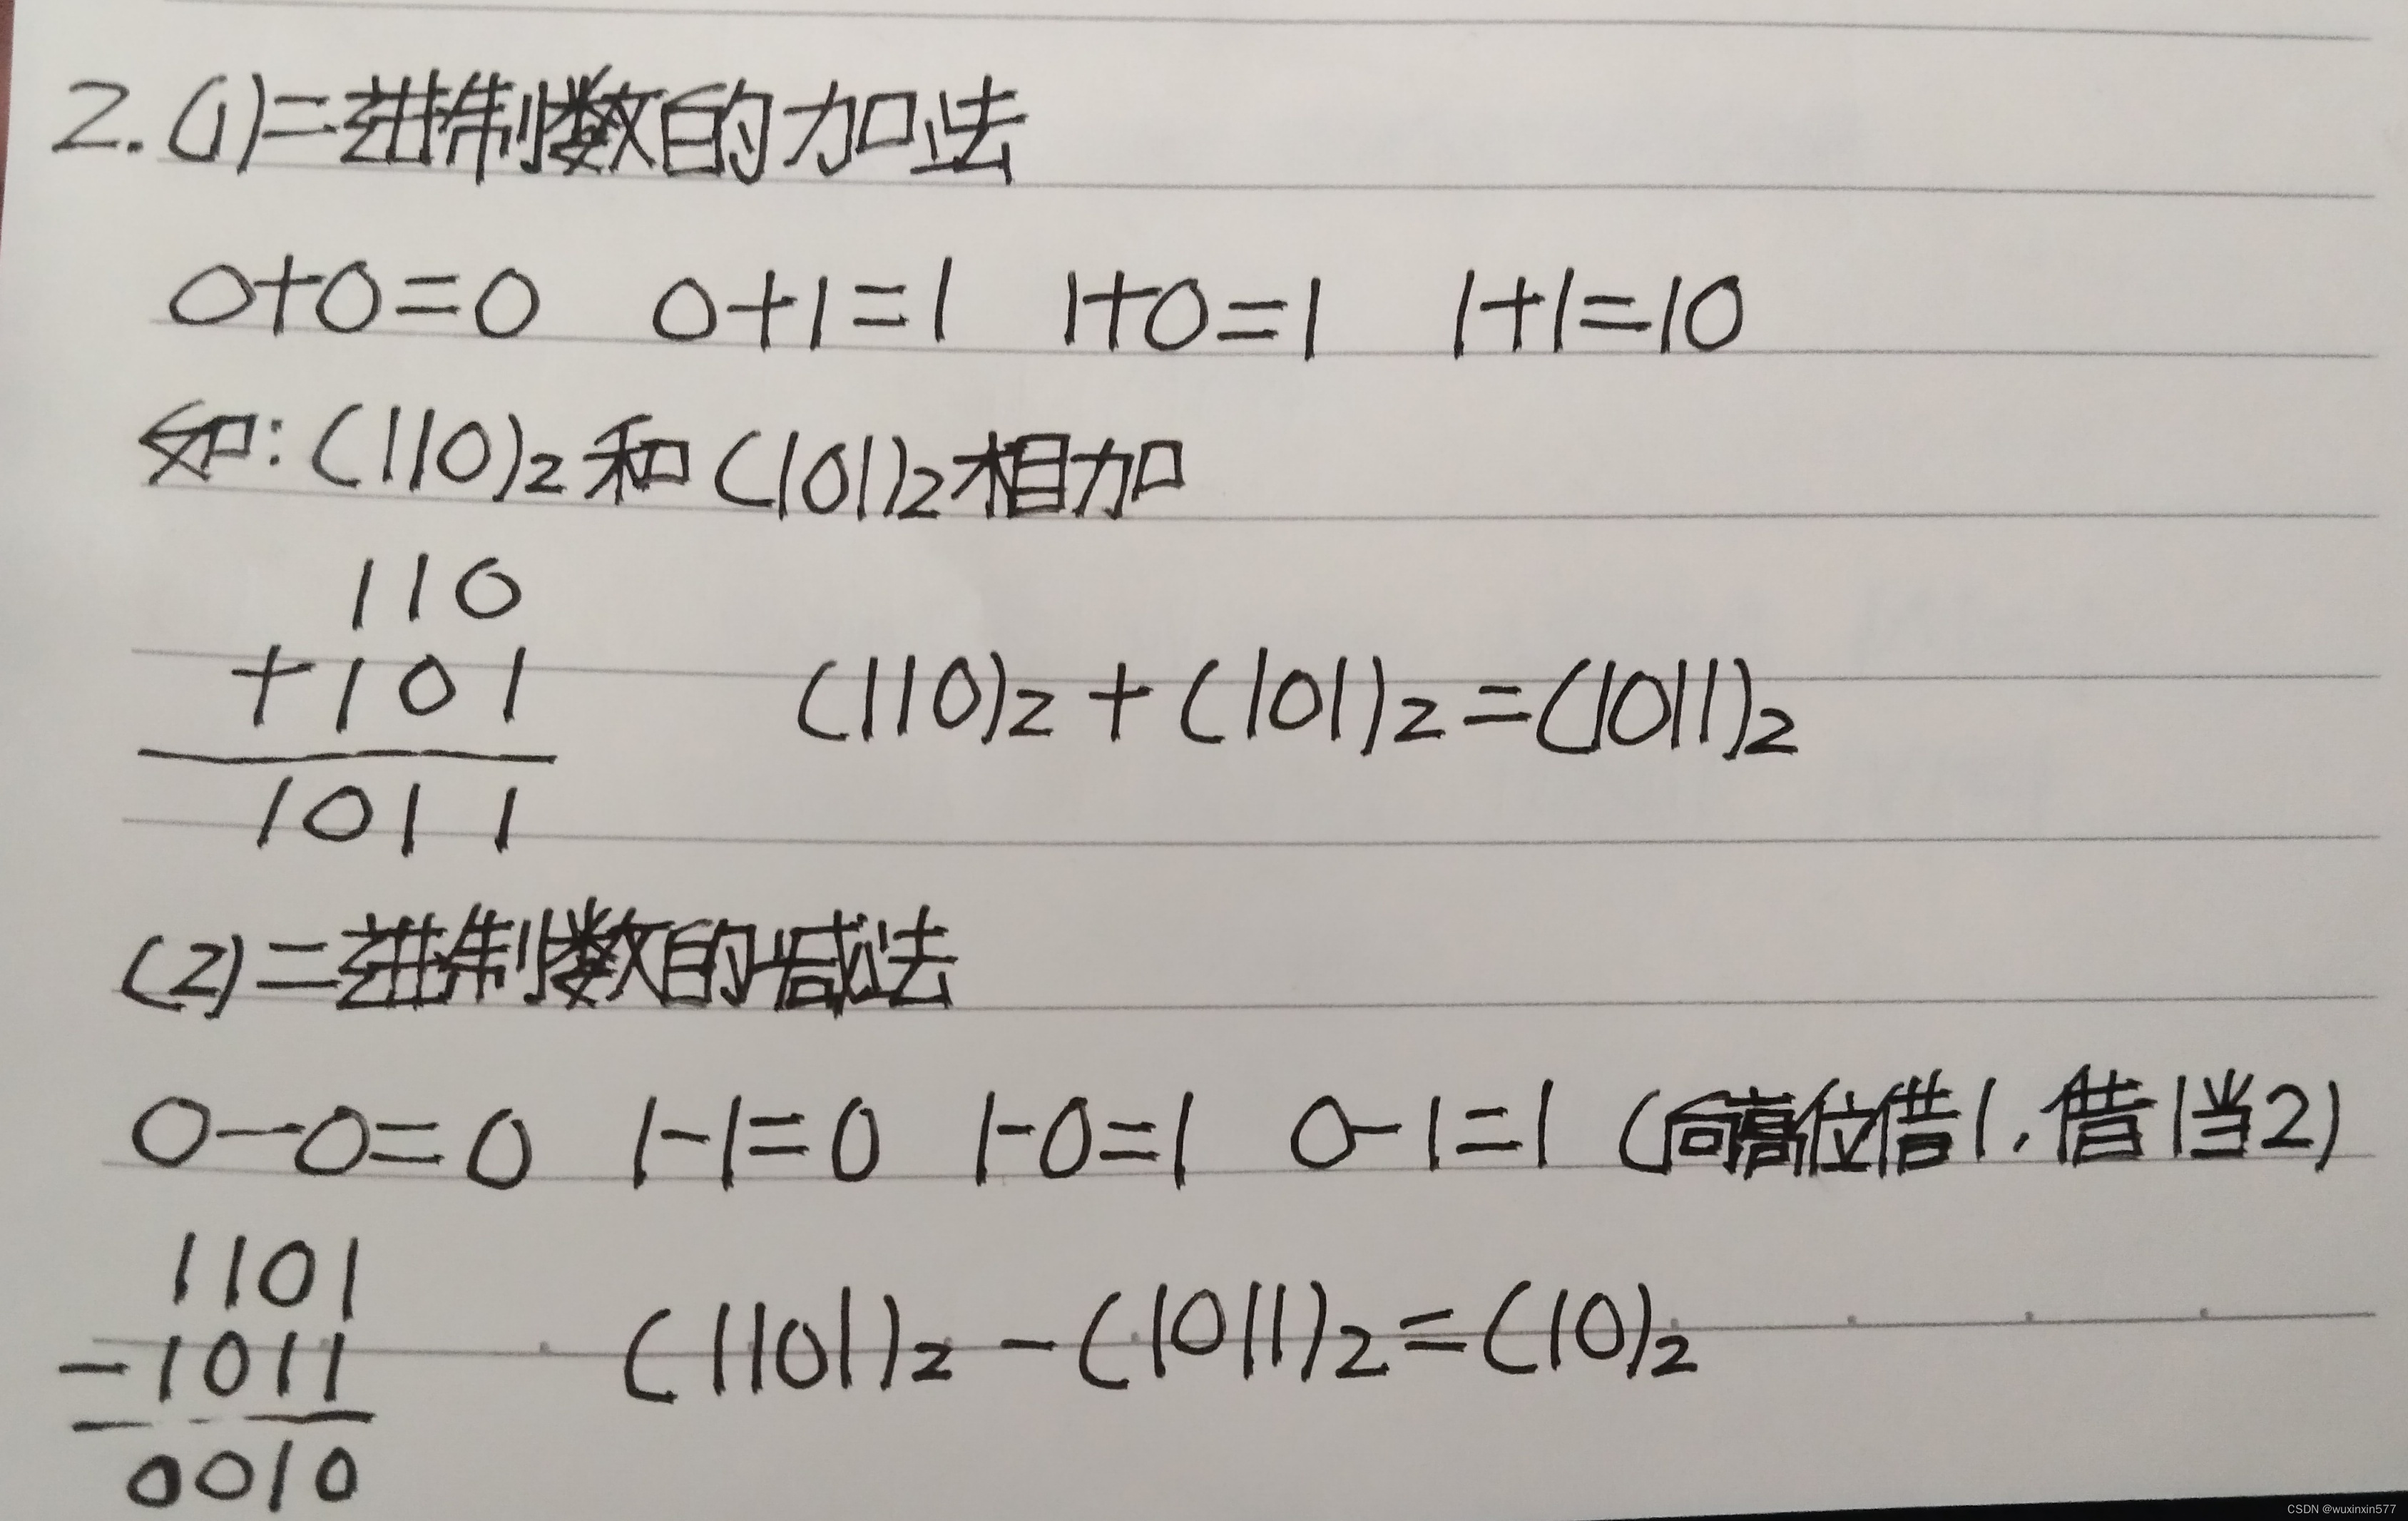 2.(1)二进制数的加法
0+0=0 0+1=1 1+0=1 1+1=10
如:(110)₂和(101)₂相加
110
+101 (110)₂+(101)₂=(1011)₂
1011
(2)二进制数的减法
0-0=0 1-1=0 1-0=1 0-1=1 (向高位借1,借1当2)
1101
-1011 (1101)₂-(1011)₂=(10)₂
0010
CSDN @wuxinxin577